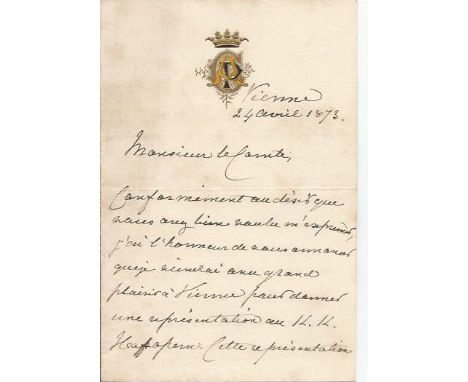 Vienne
24 avril 1873.
Monsieur le Comte,
Conformément au désir que
vous avez bien voulu m'exprimer,
j'ai l'honneur de vous annoncer
que je viendrai avec grand
plaisir à Vienne pour donner
une représentation au K. K.
Hofopern. Cette représentation